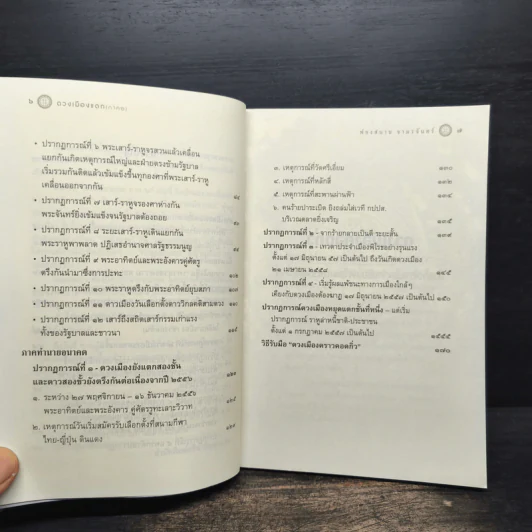 ๖ ดวงเมืองแตก(ภาค๓)
• ปรากฏการณ์ที่ ๖ พระเสาร์-ราหูจรสวนแล้วเคลื่อน
แยกกันเกิดเหตุการณ์ใหญ่และฝ่ายตรงข้ามรัฐบาล
เริ่มรวมกันติดแล้วเข้มแข็งขึ้นทุกองศาที่พระเสาร์-ราหู
เคลื่อนออกจากกัน
• ปรากฏการณ์ที่ ๗ เสาร์-ราหูจรองศาห่างกัน
พระจันทร์ยิ่งเข้มแข็งจนรัฐบาลต้องถอย
• ปรากฏการณ์ที่ ๘ ระยะเสาร์-ราหูเดินแยกกัน
พระราหูพาพลาด ปฏิเสธอำนาจศาลรัฐธรรมนูญ
• ปรากฏการณ์ที่ ๙ พระอาทิตย์และพระอังคารคู่ศัตรู
ตรึงกันนำมาซึ่งการปะทะ
• ปรากฏการณ์ที่ ๑๐ พระราหูตรึงกับพระอาทิตย์อุบสภา
• ปรากฏการณ์ที่ ๑๑ ดาวเมืองวันเลือกตั้งดาววิกลคติสามดวง
• ปรากฏการณ์ที่ ๑๒ เสาร์ถึงสถิตเสาร์กรรมเก่าแรง
ทั้งของรัฐบาลและชาวนา
ภาคทำนายอนาคต
ปรากฏการณ์ที่ ๑ - ดวงเมืองยังแตกสองขั้น
และดาวสองขั้วยังตรึงกันต่อเนื่องจากปี ๒๕๕๖
๑. ระหว่าง ๒๗ พฤศจิกายน – ๑๖ ธันวาคม ๒๕๕๖
พระอาทิตย์และพระอังคาร คู่ศัตรูทะเลาะวิวาท
๒. เหตุการณ์วันเริ่มสมัครรับเลือกตั้งที่สนามกีฬา
ไทย-ญี่ปุ่น ดินแดง
๗
๓. เหตุการณ์ที่วัดศรีเอี่ยม ๑๓๐
๔. เหตุการณ์ที่หลักสี่ ๑๓๒
๕. เหตุการณ์ที่สะพานผ่านฟ้า
๖. คนร้ายปาระเบิด ยิงถล่มใส่เวที กปปส.
บริเวณตลาดยิ่งเจริญ ๑๓๕
ปรากฏการณ์ที่ ๒ - จากร้ายกลายเป็นดี ระยะสั้น ๑๓๙
ปรากฏการณ์ที่ ๓ - เทวดาประจำเมืองพิโรธอย่างรุนแรง
ตั้งแต่ ๑๗ มิถุนายน ๕๗ เป็นต้นไป ถึงวันเกิดดวงเมือง
๒๑ เมษายน ๒๕๕๘ ๑๔๕
ปรากฏการณ์ที่ ๔ - เริ่มรู้ผลแพ้ชนะทางการเมืองใกล้ๆ
เคียงกับดวงเมืองต้องฆาฏ ๑๗ มิถุนายน ๒๕๕๗ เป็นต้นไป ๑๕๐
ปรากฏการณ์ดวงเมืองหยุดแตกชั้นที่หนึ่ง - แต่เริ่ม
ปรากฏการณ์ ราหูล่าหนี้ชาติ-ประชาชน
ตั้งแต่ ๑ กรกฎาคม ๒๕๕๗ เป็นต้นไป
วิธีรับมือ “ดวงเมืองคราวคอดกิ่ว”